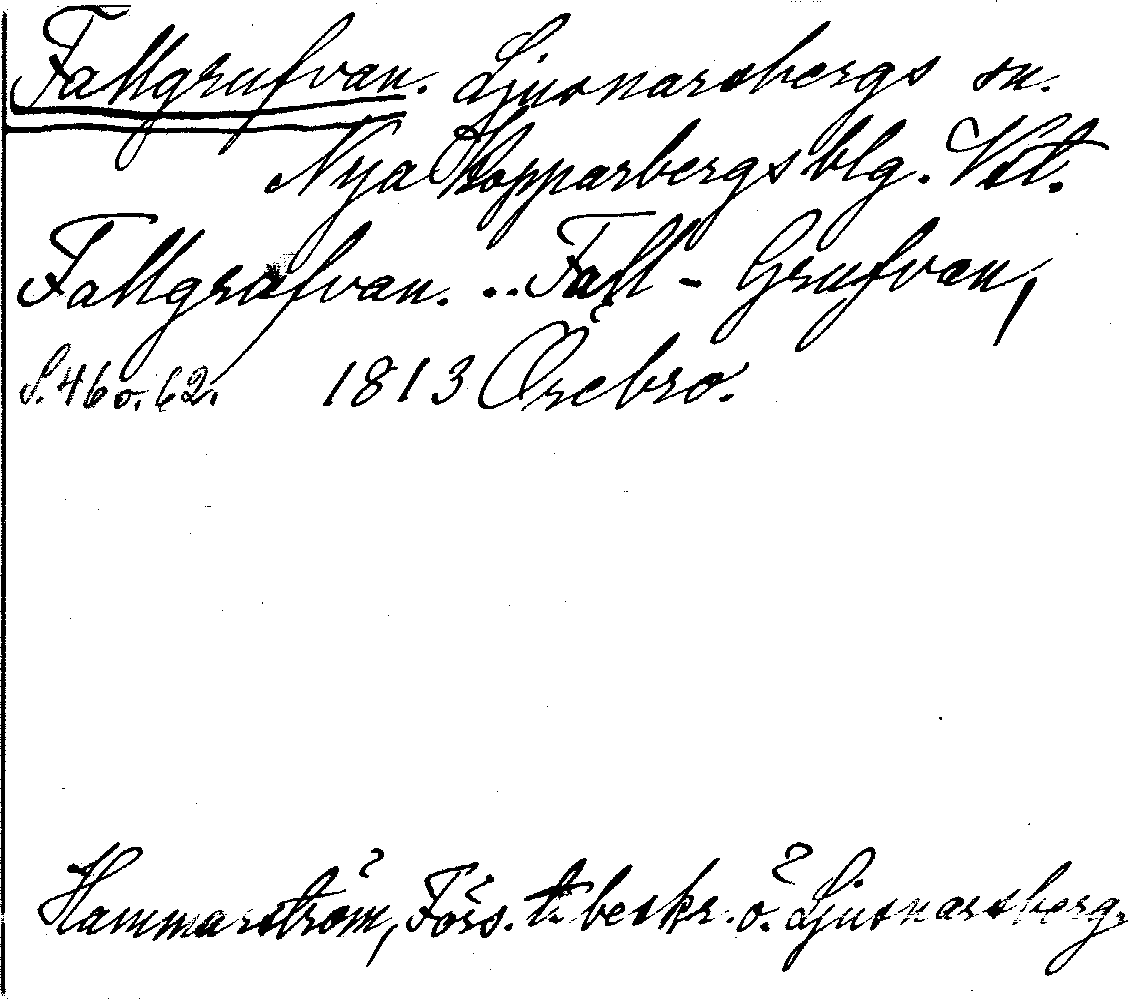 Fallgrufvan. Ljusnarsbergs sn.
Nya Kopparbergs blg. Vstl.
Fallgrufvan. .. Fall - Grufvan,
S. 46 o. 62. 1813 Örebro.
Hammarström, Förs. t. beskr. ö. Ljusnarsberg.